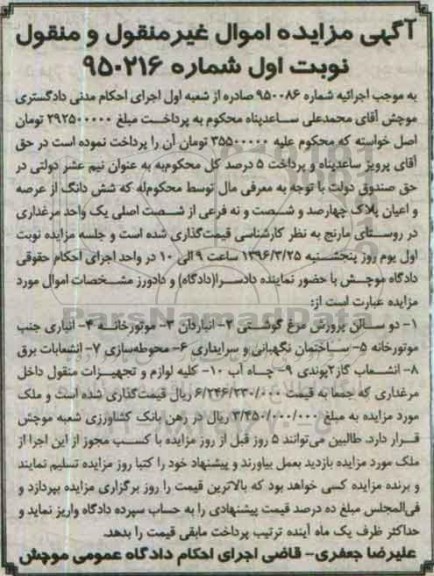 آگهی مزایده اموال غیرمنقول و منقول
نوبت اول شماره ۹۵۰۲۱۶
به موجب اجرائیه شماره ۹۵۰۰۸۶ صادره از شعبه اول اجرای احکام مدنی دادگستری
موچش آقای محمدعلی ساعدپناه محکوم به پرداخت مبلغ ۲۹۲۵۰۰۰۰۰ تومان
اصل خواسته که محکوم علیه ۳۵۵۰۰۰۰۰ تومان آن را پرداخت نموده است در حق
آقای پرویز ساعدپناه و پرداخت ۵ درصد کل محکوم‌به به عنوان نیم عشر دولتی در
حق صندوق دولت با توجه به معرفی مال توسط محکوم‌له که شش دانگ از عرصه
و اعیان پلاک چهارصد و شصت و نه فرعی از شصت اصلی یک واحد مرغداری
در روستای مارنج به نظر کارشناسی قیمت‌گذاری شده است و جلسه مزایده نوبت
اول یوم روز پنجشنبه ۱۳۹۶/۳/۲۵ ساعت ۹ الی ۱۰ در واحد اجرای احکام حقوقی
دادگاه موچش با حضور نماینده دادسرا(دادگاه) و دادورز مشخصات اموال مورد
مزایده عبارت است از:
۱- دو سالن پرورش مرغ گوشتی ۲- انباردان ۳- موتورخانه ۴- انباری جنب
موتورخانه ۵- ساختمان نگهبانی و سرایداری ۶- محوطه‌سازی ۷- انشعابات برق
۸- انشعاب گاز ۲پوندی ۹- چاه آب ۱۰- کلیه لوازم و تجهیزات منقول داخل
مرغداری که جمعا به قیمت ۶/۲۴۶/۲۳۰/۰۰۰ ریال قیمت‌گذاری شده است و ملک
مورد مزایده به مبلغ ۳/۴۵۰/۰۰۰/۰۰۰ ریال در رهن بانک کشاورزی شعبه موچش
قرار دارد. طالبین می‌توانند ۵ روز قبل از روز مزایده با کسب مجوز از این اجرا از
ملک مورد مزایده بازدید بعمل بیاورند و پیشنهاد خود را کتبا روز مزایده تسلیم نمایند
و برنده مزایده کسی خواهد بود که بالاترین قیمت را روز برگزاری مزایده بپردازد و
فی‌المجلس مبلغ ده درصد قیمت پیشنهادی را به حساب سپرده دادگاه واریز نماید و
حداکثر ظرف یک ماه آینده ترتیب پرداخت مابقی قیمت را بدهد.
علیرضا جعفری- قاضی اجرای احکام دادگاه عمومی موچش
ParsNamadData